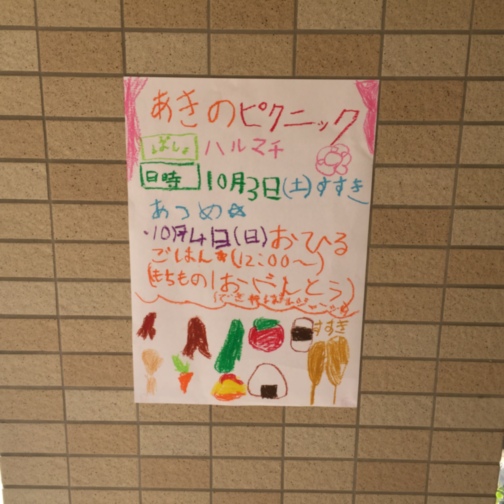 あきのピクニック
ばしょ ハルマチ
日時 10月3日(土)すすき
あつめ☆
・10月4日(日)おひる
ごはん★(12:00〜)
(もちもの)おべんとう)
すすき